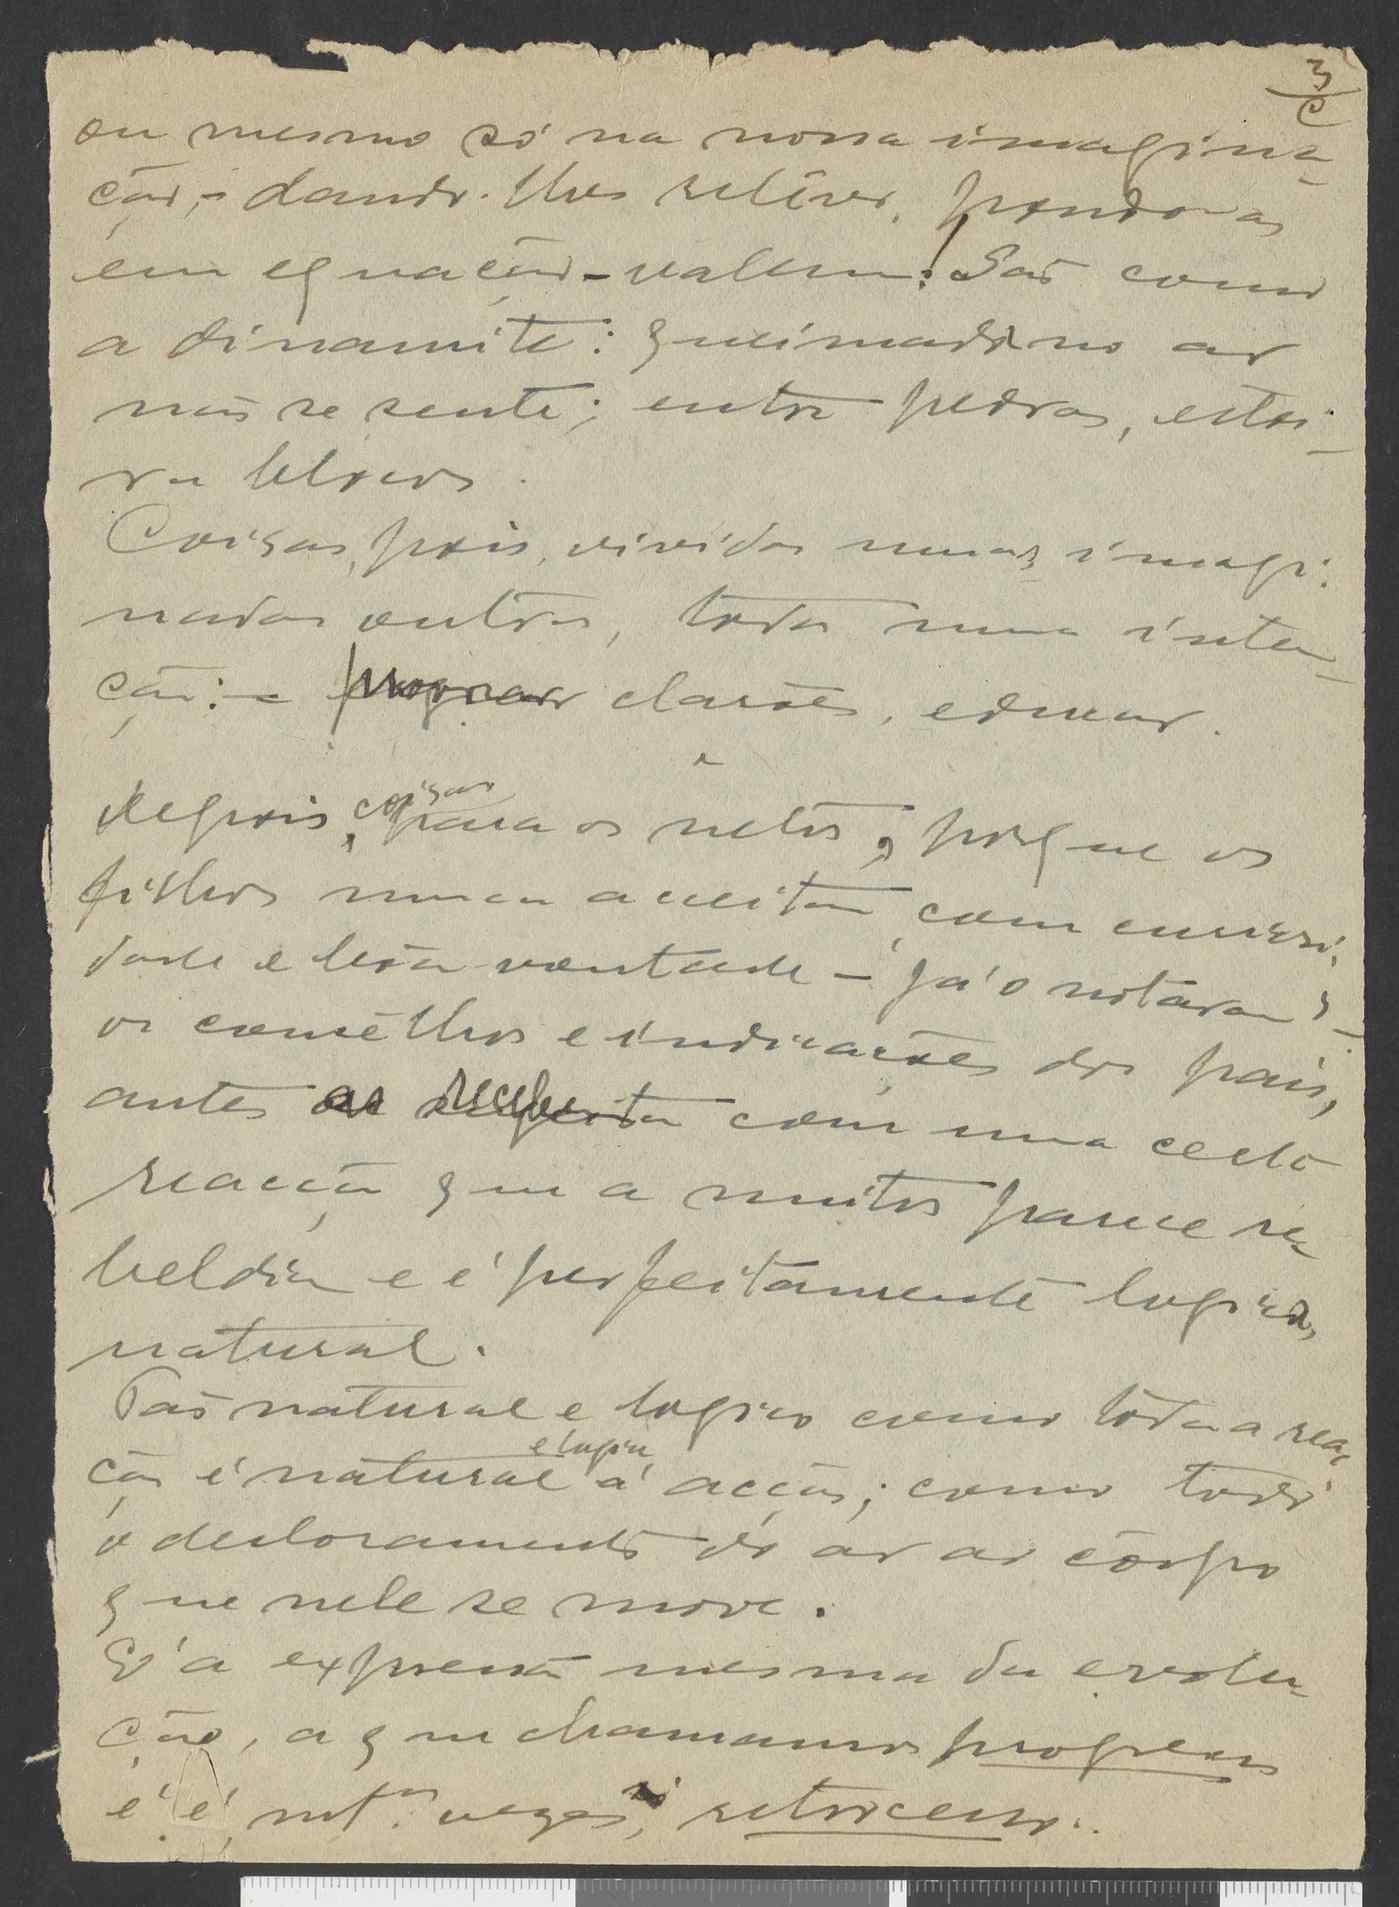 3/C
ou mesmo só na nossa imagina-
ção,- dando-lhes relêvo, pondo-as
em equação - valem! São como
a dinamite: queimado no ar
não se sente; entre pedras, estoi-
ra blocos.
Coisas, pois, vividas umas, imagi-
nadas outras, todas numa inten-
ção: - clarões, educar.
Depois, coisas para os netos; porque os
filhos nunca aceitam com curiosi-
dade e bôa vontade - já o notáram? -
os consêlhos e indicações dos pais,
antes com uma certa
reacção que a muitos parece re-
beldia e é perfeitamente logica,
natural.
Tão natural e logico como tôda a reac-
ção é natural e logica á acção; como todo
o deslocamento do ar ao côrpo
que nele se move.
E' a expressão mesma da evolu-
ção, a que chamamos progresso
e é, mt.as vezes, retrocesso.